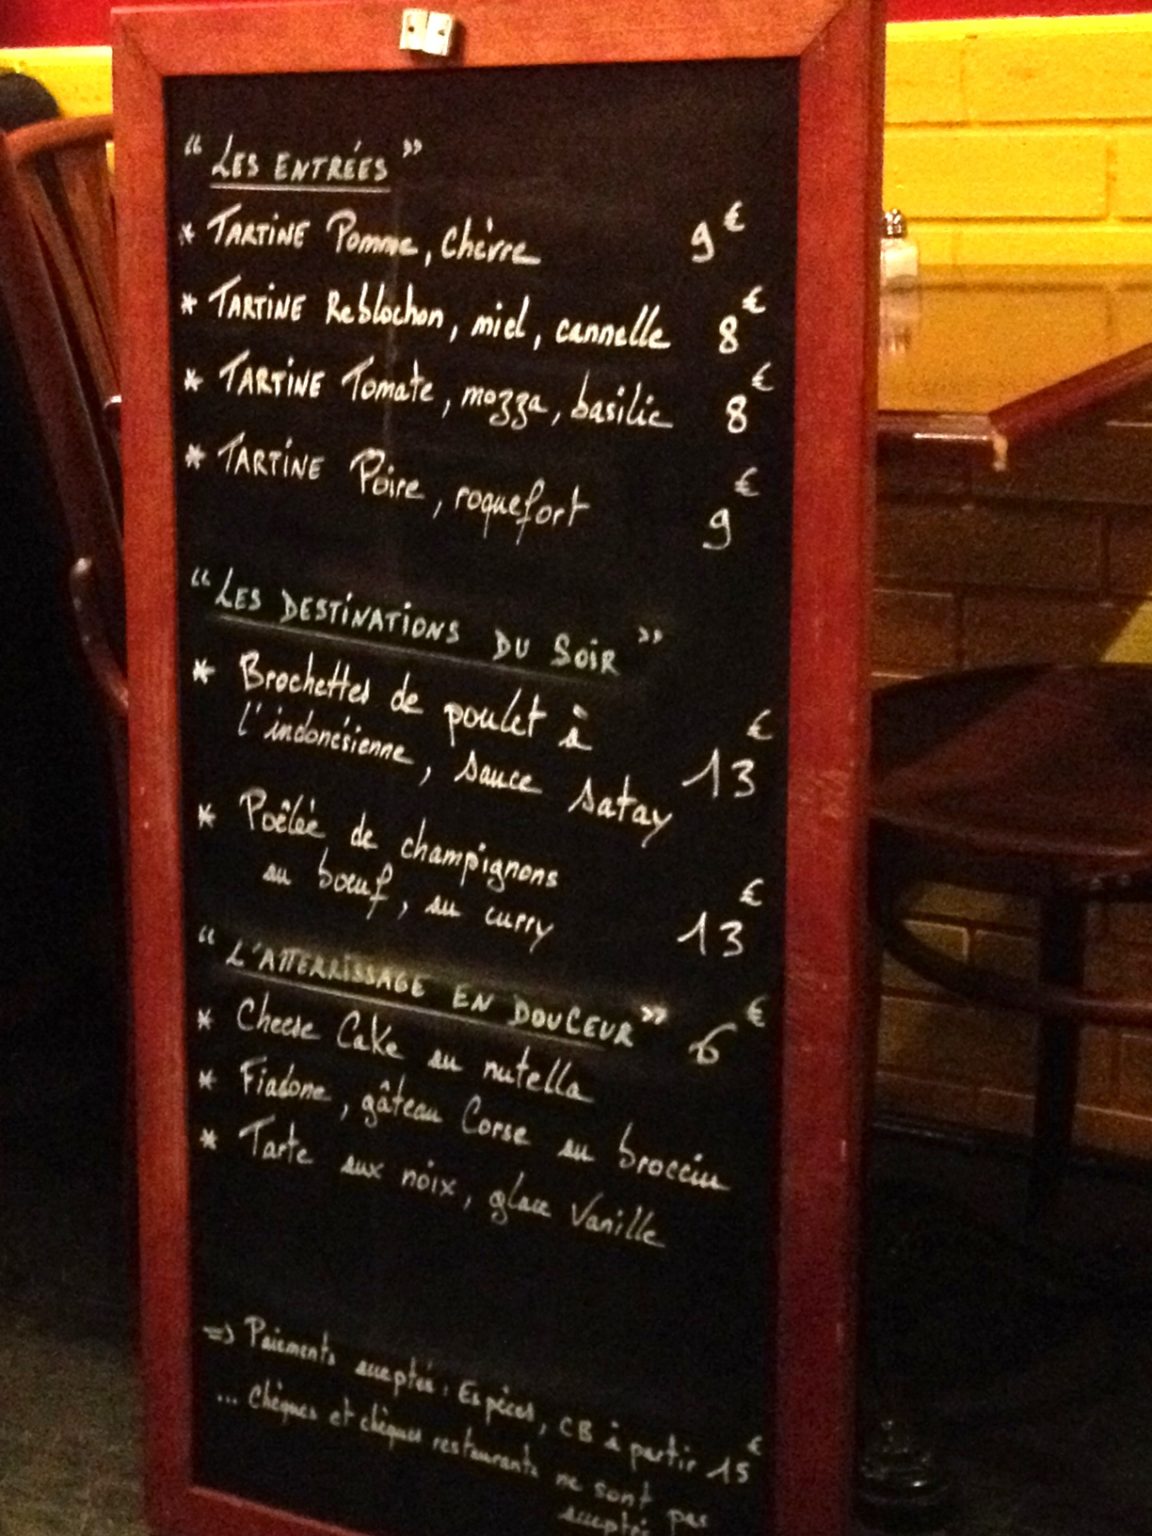 “ LES ENTRÉES ”
* TARTINE Pomme, chèvre 9€
* TARTINE Reblochon, miel, cannelle 8€
* TARTINE Tomate, mozza, basilic 8€
* TARTINE Poire, roquefort 9€
“ LES DESTINATIONS DU SOIR ”
* Brochettes de poulet à
l'indonésienne, sauce satay 13€
* Poêlée de champignons
au bœuf, au curry 13€
“ L'ATTERRISSAGE EN DOUCEUR ” 6€
* Cheese Cake au nutella
* Fiadone, gâteau Corse au brocciu
* Tarte aux noix, glace Vanille
=> Paiements acceptés : Espèces, CB à partir 15€
... chèques et chèques restaurants ne sont pas
acceptés